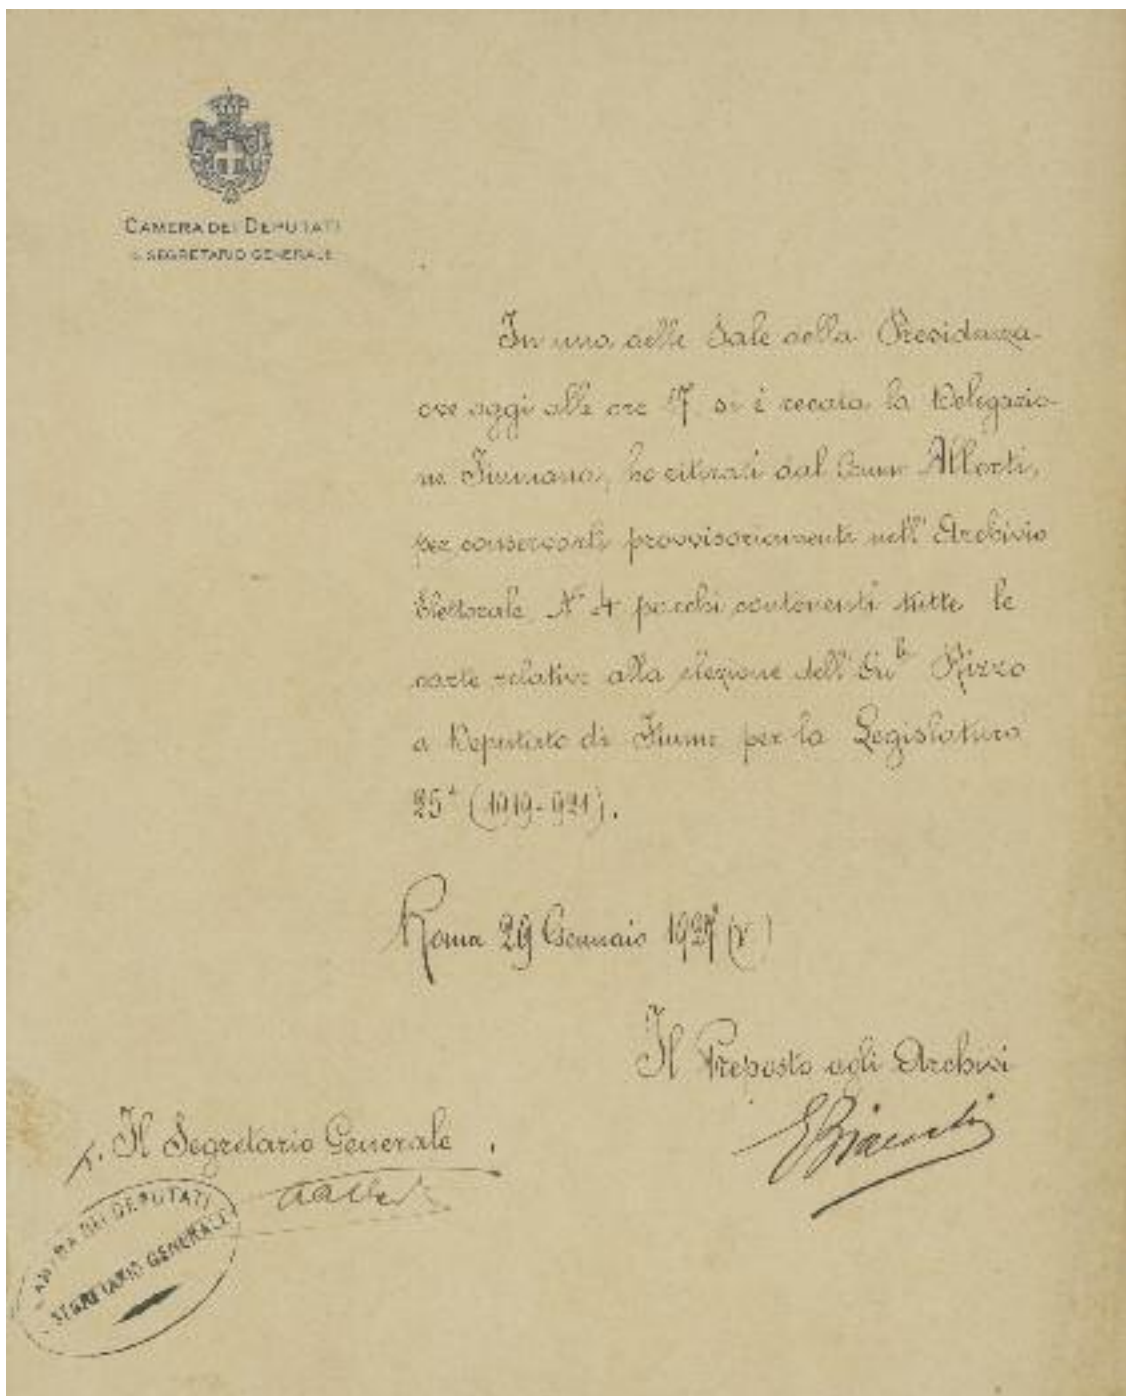 CAMERA DEI DEPUTATI
IL SEGRETARIO GENERALE
In una delle Sale della Presidenza
ove oggi alle ore 17 si è recata la Delegazio-
ne Fiumana, ho ritirati dal Comm Alberti,
per conservarli provvisoriamente nell'Archivio
Elettorale N° 4 pacchi contenenti tutte le
carte relative alla elezione dell' Rizzo
a Deputato di Fiume per la Legislatura
25ª (1919-921).
Roma 29 Gennaio 1927 (V)
Il Preposto agli Archivi
p. Il Segretario Generale
CAMERA DEI DEPUTATI
SEGRETARIO GENERALE